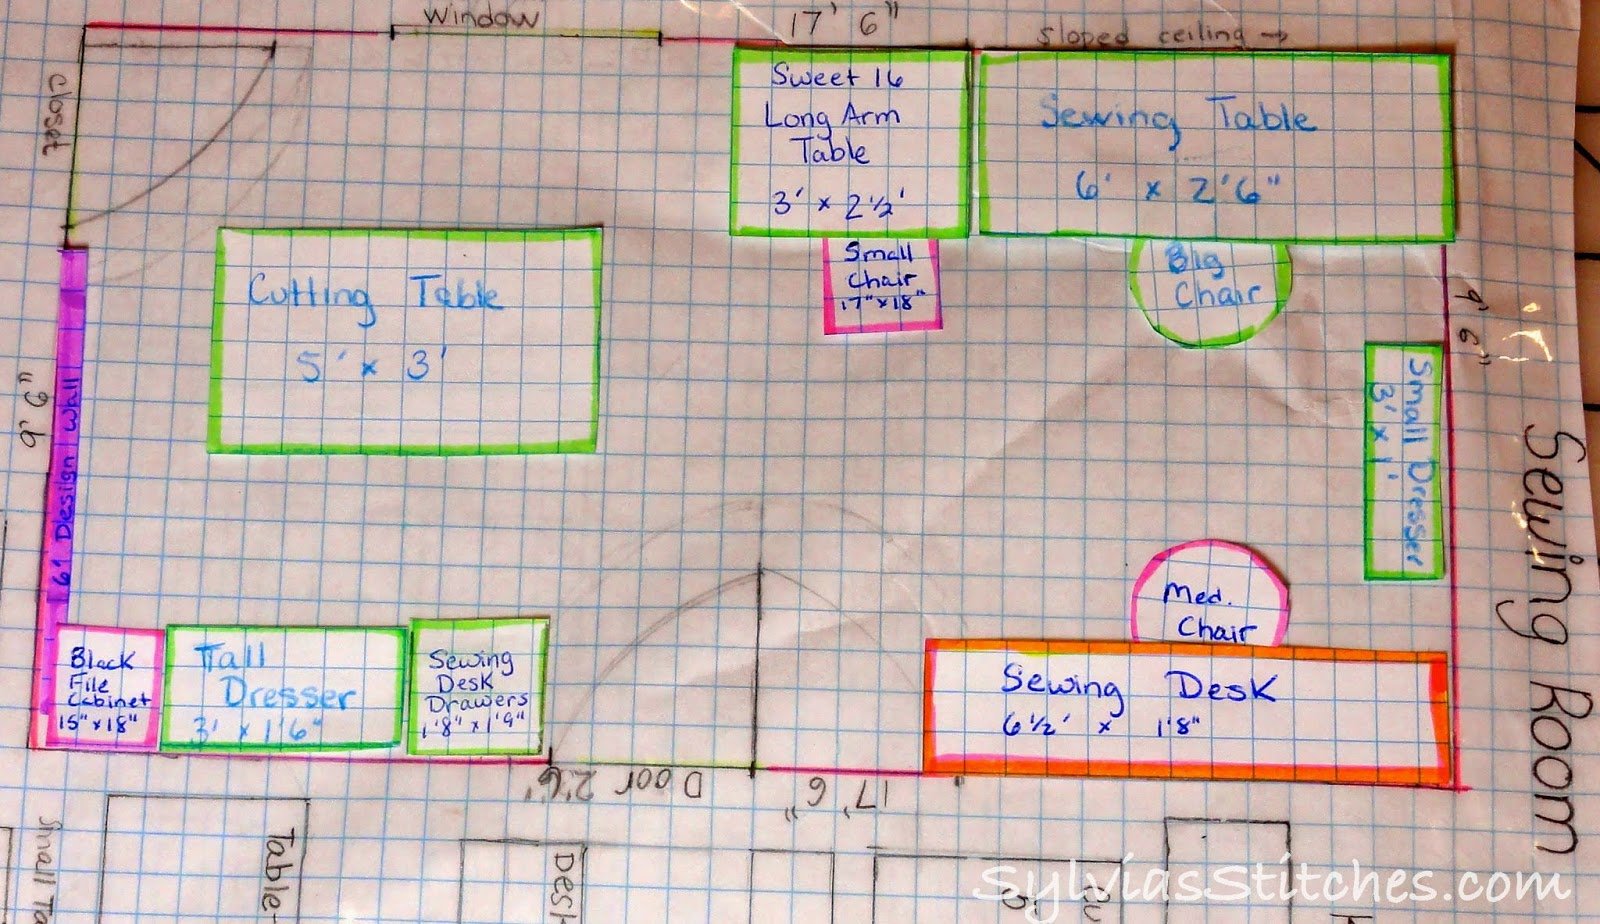 Window
17' 6"
Sloped ceiling →
closet
Sweet 16
Long Arm
Table
3' x 2½'
Sewing Table
6' x 2'6"
Cutting Table
5' x 3'
Small
Chair
17" x 18"
Big
Chair
9' 6"
Sewing Room
Small Dresser
3' x 1'
9' 6"
6' Design Wall
Med.
Chair
Black
File
Cabinet
15" x 18"
Tall
Dresser
3' x 1'6"
Sewing
Desk
Drawers
1'8" x 1'9"
Sewing Desk
6½' x 1'8"
Door 2'6"
17' 6"
Small
Table
Desk
SylviasStitches.com